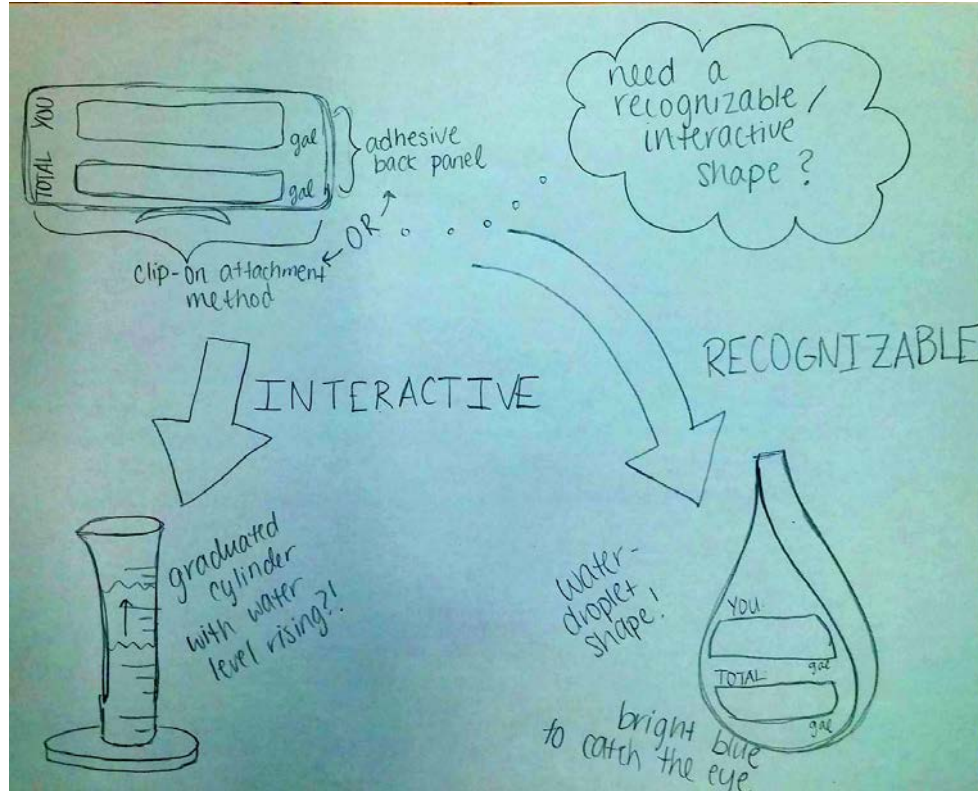 YOU
gal
TOTAL
gal
adhesive
back panel
← OR →
clip-on attachment
method
need a
recognizable /
interactive
shape ?
INTERACTIVE
RECOGNIZABLE
graduated
cylinder
with water
level rising?!
water-
droplet
shape!
YOU
gal
TOTAL
gal
bright blue
to catch the eye